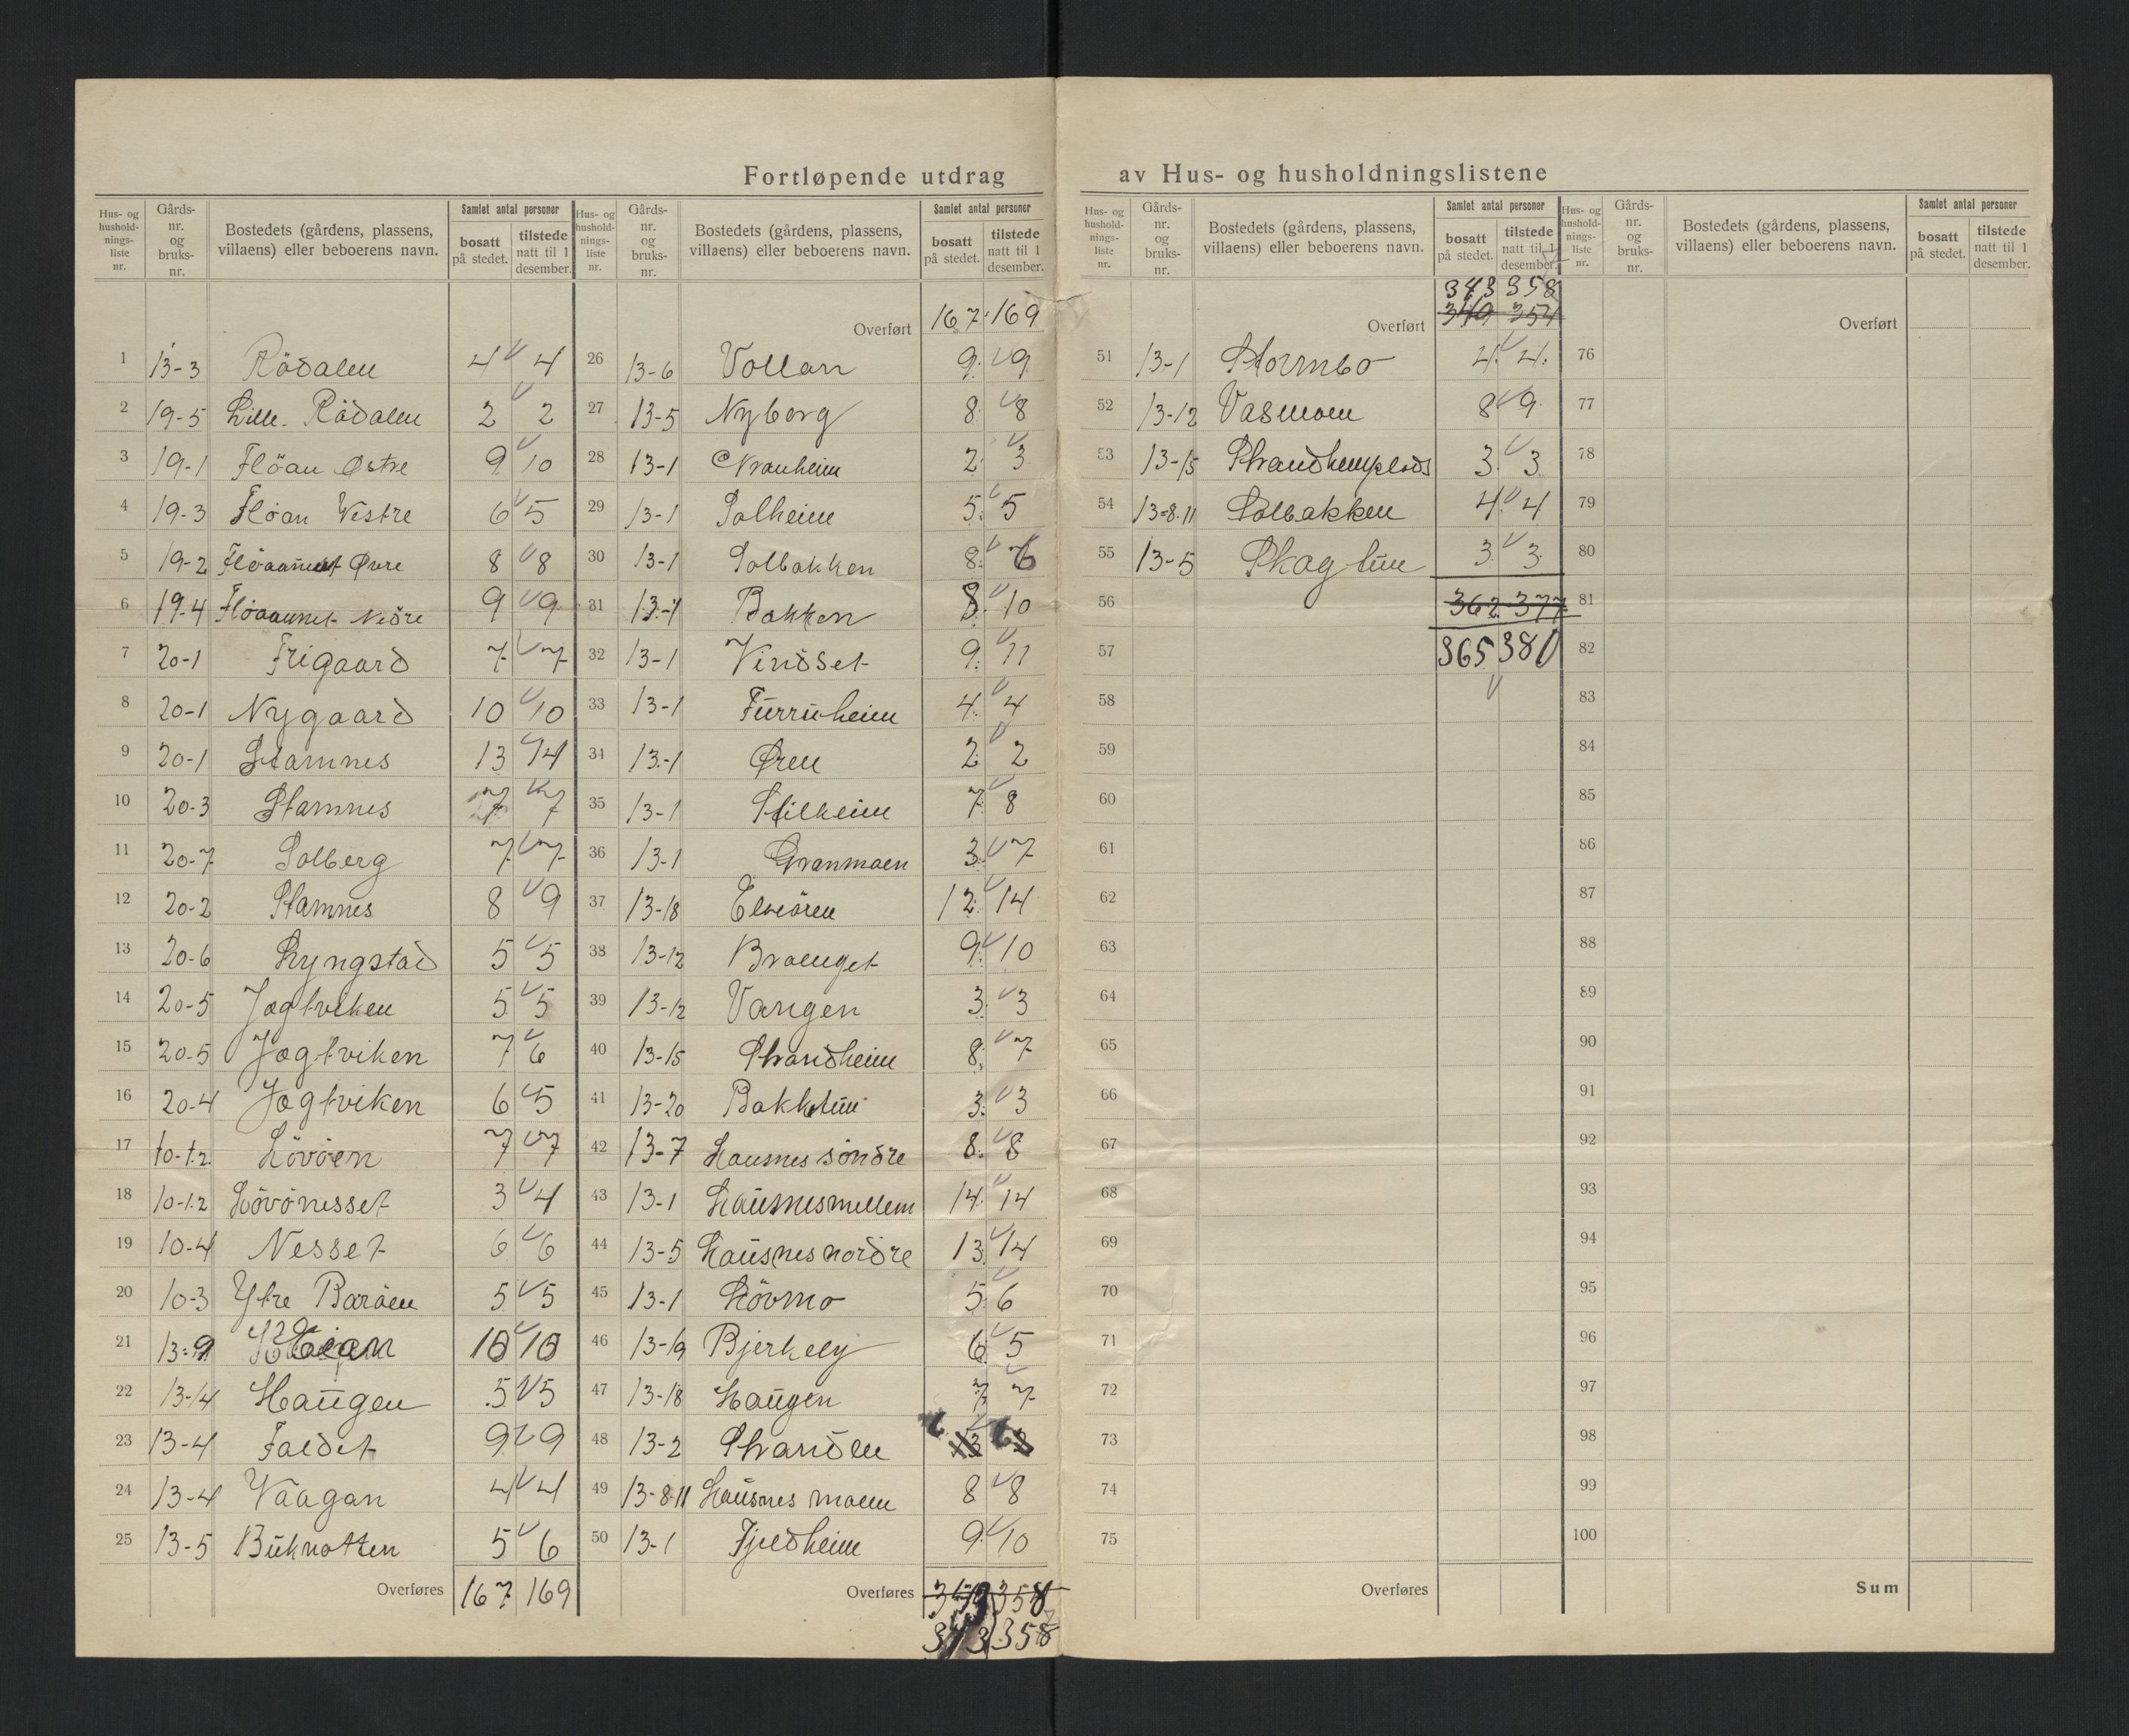 Fortløpende utdrag av Hus- og husholdningslistene
Hus- og hushold- nings- liste nr. | Gårds- nr. og bruks- nr. | Bostedets (gårdens, plassens, villaens) eller beboerens navn. | Samlet antal personer | bosatt på stedet. | tilstede natt til 1 desember.
1 13-3 Rödalen 4 4
2 19-5 Lille- Rödalen 2 2
3 19-1 Flöan Østre 9 10
4 19-3 Flöan Vestre 6 5
5 19-2 Flöaunet Øvre 8 8
6 19-4 Flöaaunet Nedre 9 9
7 20-1 Frigaard 7 7
8 20-1 Nygaard 10 10
9 20-1 Stamnes 13 14
10 20-3 Stamnes 7 7
11 20-7 Solberg 7 7
12 20-2 Stamnes 8 9
13 20-6 Lyngstad 5 5
14 20-5 Jagtviken 5 5
15 20-5 Jagtviken 7 6
16 20-4 Jagtviken 6 5
17 10-1.2 Lövöen 7 7
18 10-1.2 Lövönesset 3 4
19 10-4 Nesset 6 6
20 10-3 Ytre Baröen 5 5
21 13-9 10 10
22 13-14 Haugen 5 5
23 13-4 Faldet 9 9
24 13-4 Vaagan 4 4
25 13-5 Buknotten 5 6
Overføres 167 169
Hus- og hushold- nings- liste nr. | Gårds- nr. og bruks- nr. | Bostedets (gårdens, plassens, villaens) eller beboerens navn. | Samlet antal personer | bosatt på stedet. | tilstede natt til 1 desember.
Overført 167 169
26 13-6 Vollan 9 9
27 13-5 Nyborg 8 8
28 13-1 2 3
29 13-1 Solheim 5 5
30 13-1 Solbakken 8 6
31 13-4 Bakken 8 10
32 13-1 Vindset 9 11
33 13-1 Furruheim 4 4
34 13-1 Øren 2 2
35 13-1 Stilheim 7 8
36 13-1 Granmoen 3 7
37 13-18 Elveören 12 14
38 13-12 Braenget 9 10
39 13-12 Vangen 3 3
40 13-15 Strandheim 8 7
41 13-20 Baktun 3 3
42 13-7 Hausnes söndre 8 8
43 13-1 Hausnes mellem 14 14
44 13-5 Hausnes nordre 13 14
45 13-1 Lövmo 5 6
46 13-19 Bjerkely 6 5
47 13-18 Haugen 7 7
48 13-2 Stranden 6 6
49 13-8.11 Hausnes moen 8 8
50 13-1 Fjeldheim 9 10
Overføres 349 358
343 358
Hus- og hushold- nings- liste nr. | Gårds- nr. og bruks- nr. | Bostedets (gårdens, plassens, villaens) eller beboerens navn. | Samlet antal personer | bosatt på stedet. | tilstede natt til 1 desember.
343 358
Overført 349 354
51 13-1 Stormbo 4 4
52 13-12 Vasmoen 8 9
53 13-15 Strandhemplads 3 3
54 13-8.11 Solbakken 4 4
55 13-5 Skogtun 3 3
56 362 377
57 365 381
58
59
60
61
62
63
64
65
66
67
68
69
70
71
72
73
74
75
Overføres
Hus- og hushold- nings- liste nr. | Gårds- nr. og bruks- nr. | Bostedets (gårdens, plassens, villaens) eller beboerens navn. | Samlet antal personer | bosatt på stedet. | tilstede natt til 1 desember.
Overført
76
77
78
79
80
81
82
83
84
85
86
87
88
89
90
91
92
93
94
95
96
97
98
99
100
Sum